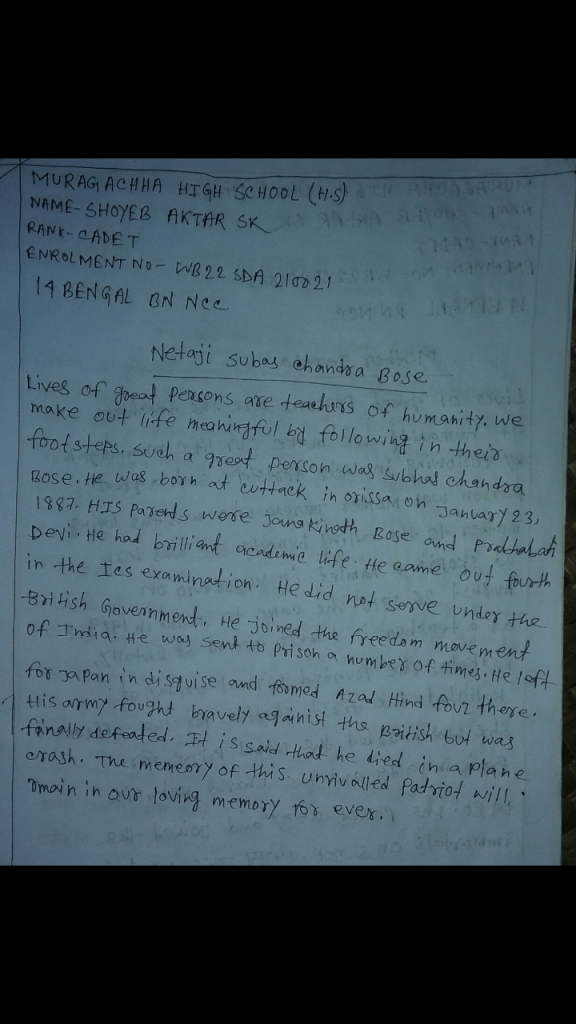 MURAGACHHA HIGH SCHOOL (H.S)
NAME- SHOYEB AKTAR SK
RANK- CADET
ENROLMENT NO- WB22 SDA 210021
14 BENGAL BN NCC
Netaji Subas chandra Bose
Lives of great persons are teachers of humanity. We
make out life meaningful by following in their
footsteps. Such a great person was subhas chandra
Bose. He was born at cuttack in orissa on January 23,
1887. HIS parents were Janakinath Bose and Prabhabati
Devi. He had brilliant academic life. He came out fourth
in the Ics examination. He did not serve under the
British Government. He joined the freedom movement
of India. He was sent to prison a number of times. He left
for Japan in disquise and formed Azad Hind fouz there.
His army fought bravely againist the British but was
finally defeated. It is said that he died in a plane
crash. The memeory of this unrivalled Patriot will
rmain in our loving memory for ever.